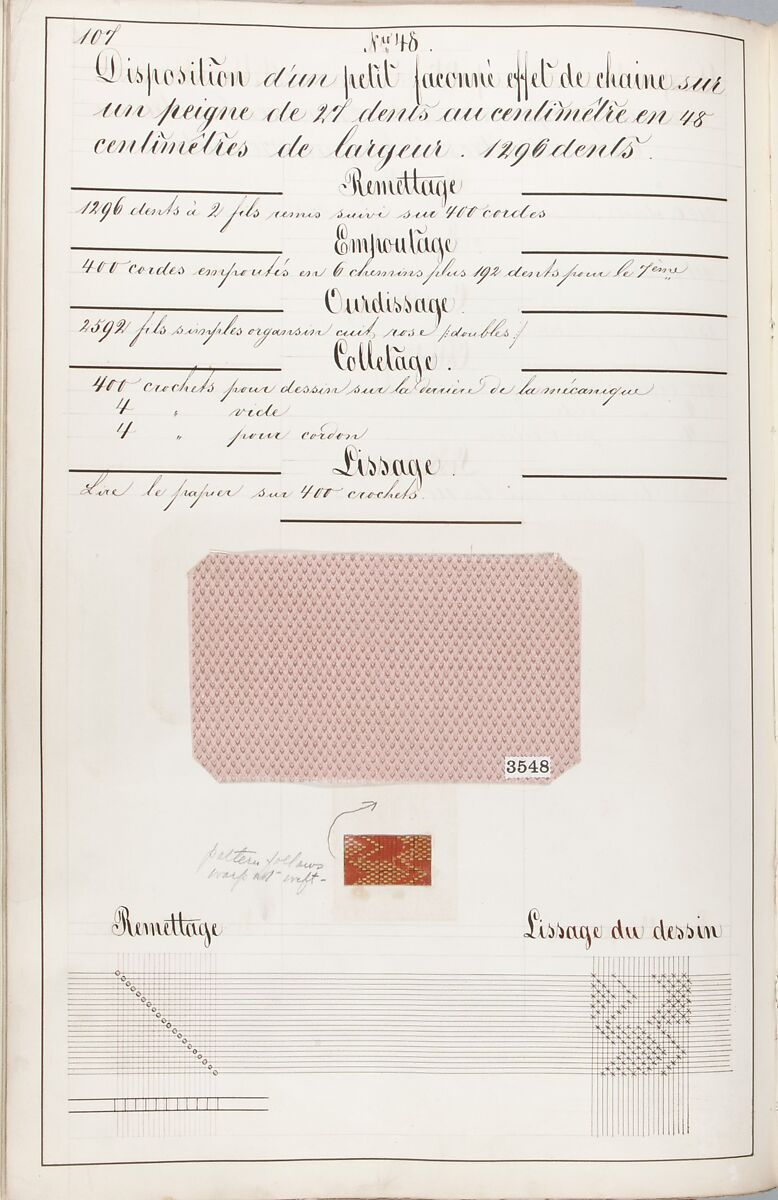 107
No 48.
Disposition d'un petit façonné effet de chaine sur
un peigne de 27 dents au centimètre en 48
centimètres de largeur. 1296 dents.
Remettage
1296 dents à 2 fils remis suivi sur 400 cordes
Empoutage
400 cordes empoutés en 6 chemins plus 192 dents pour le 7ème
Ourdissage.
2592 fils simples organsin cuit, rose /:doubles:/
Colletage.
400 crochets pour dessin sur la derrière de la mécanique
4 " vide
4 " pour cordon
Lissage.
Lire le papier sur 400 crochets.
3548
pattern follows
warp not weft -
Remettage
Lissage du dessin